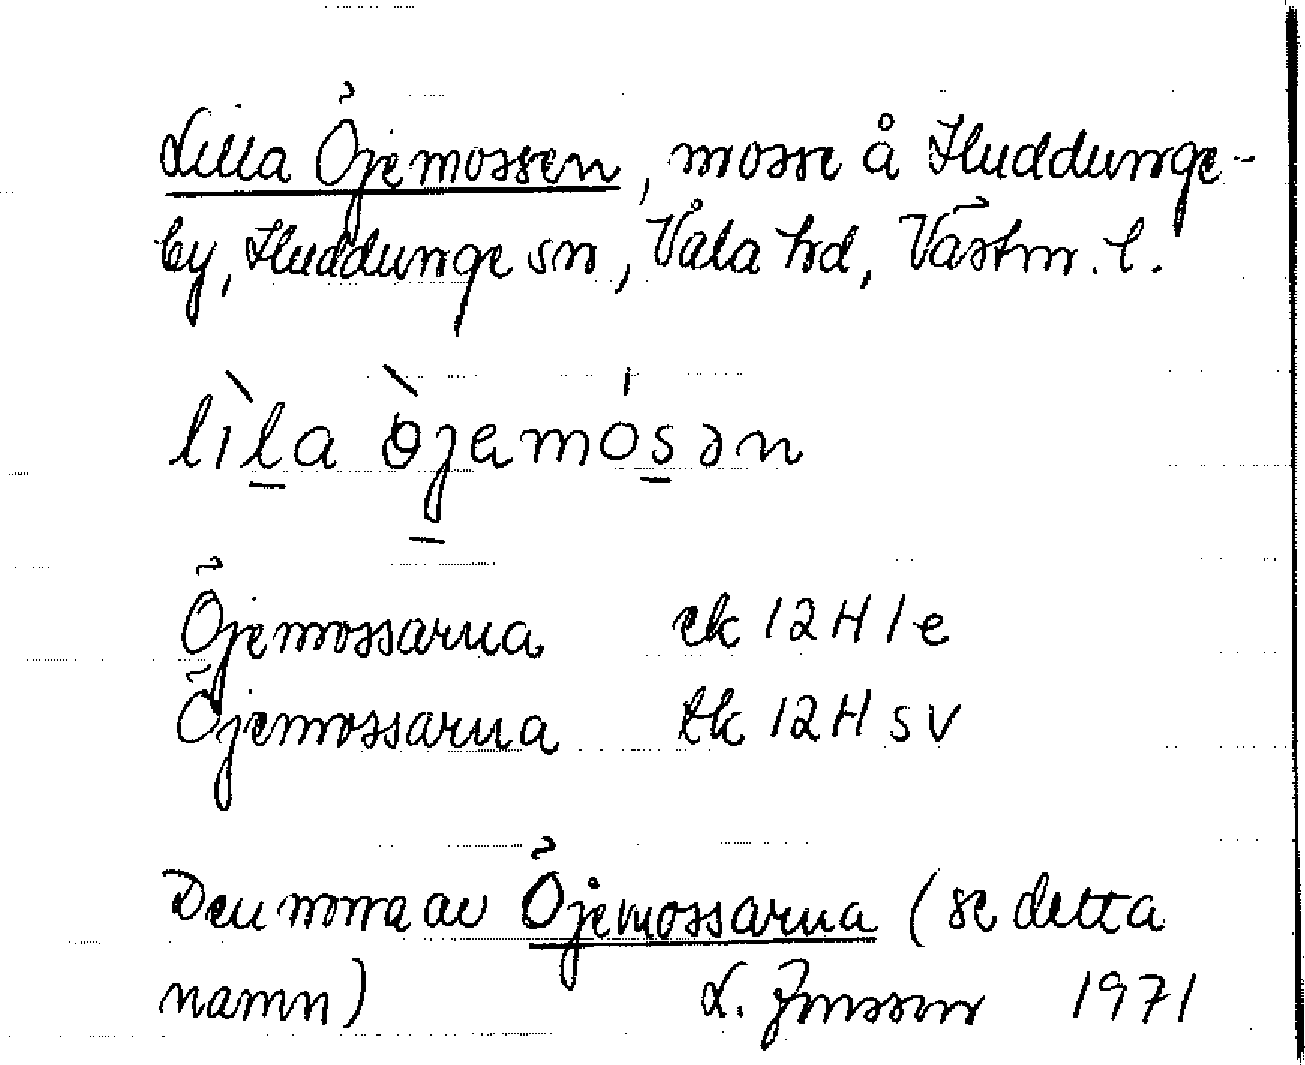 Lilla Öjemossen, mosse å Huddunge-
by, Huddunge sn, Våla hd, Västm. l.
lìla öjemósən
Öjemossarna ek 12H 1e
Öjemossarna tk 12H SV
Den norra av Öjemossarna (se detta
namn) L. Jonsson 1971